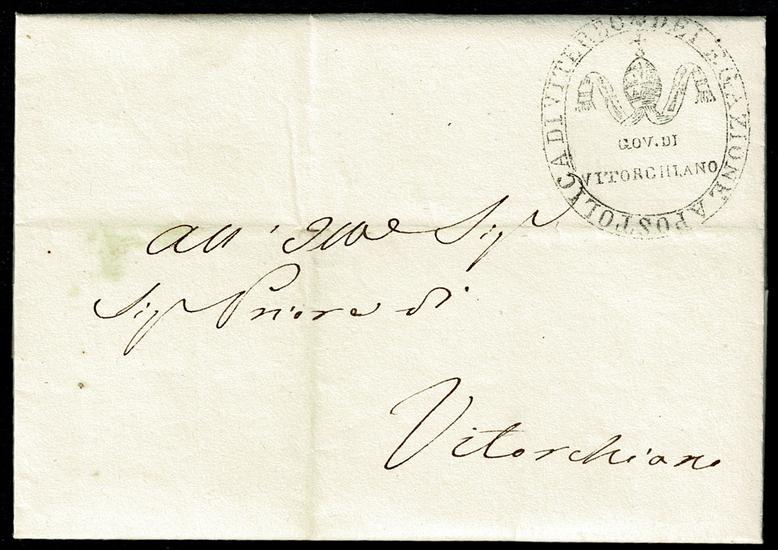 DELEGAZIONE APOSTOLICA DI VITERBO
GOV. DI
VITORCHIANO
All' Illᵉ Sigʳ
Sigʳ Priore di
Vitorchiano